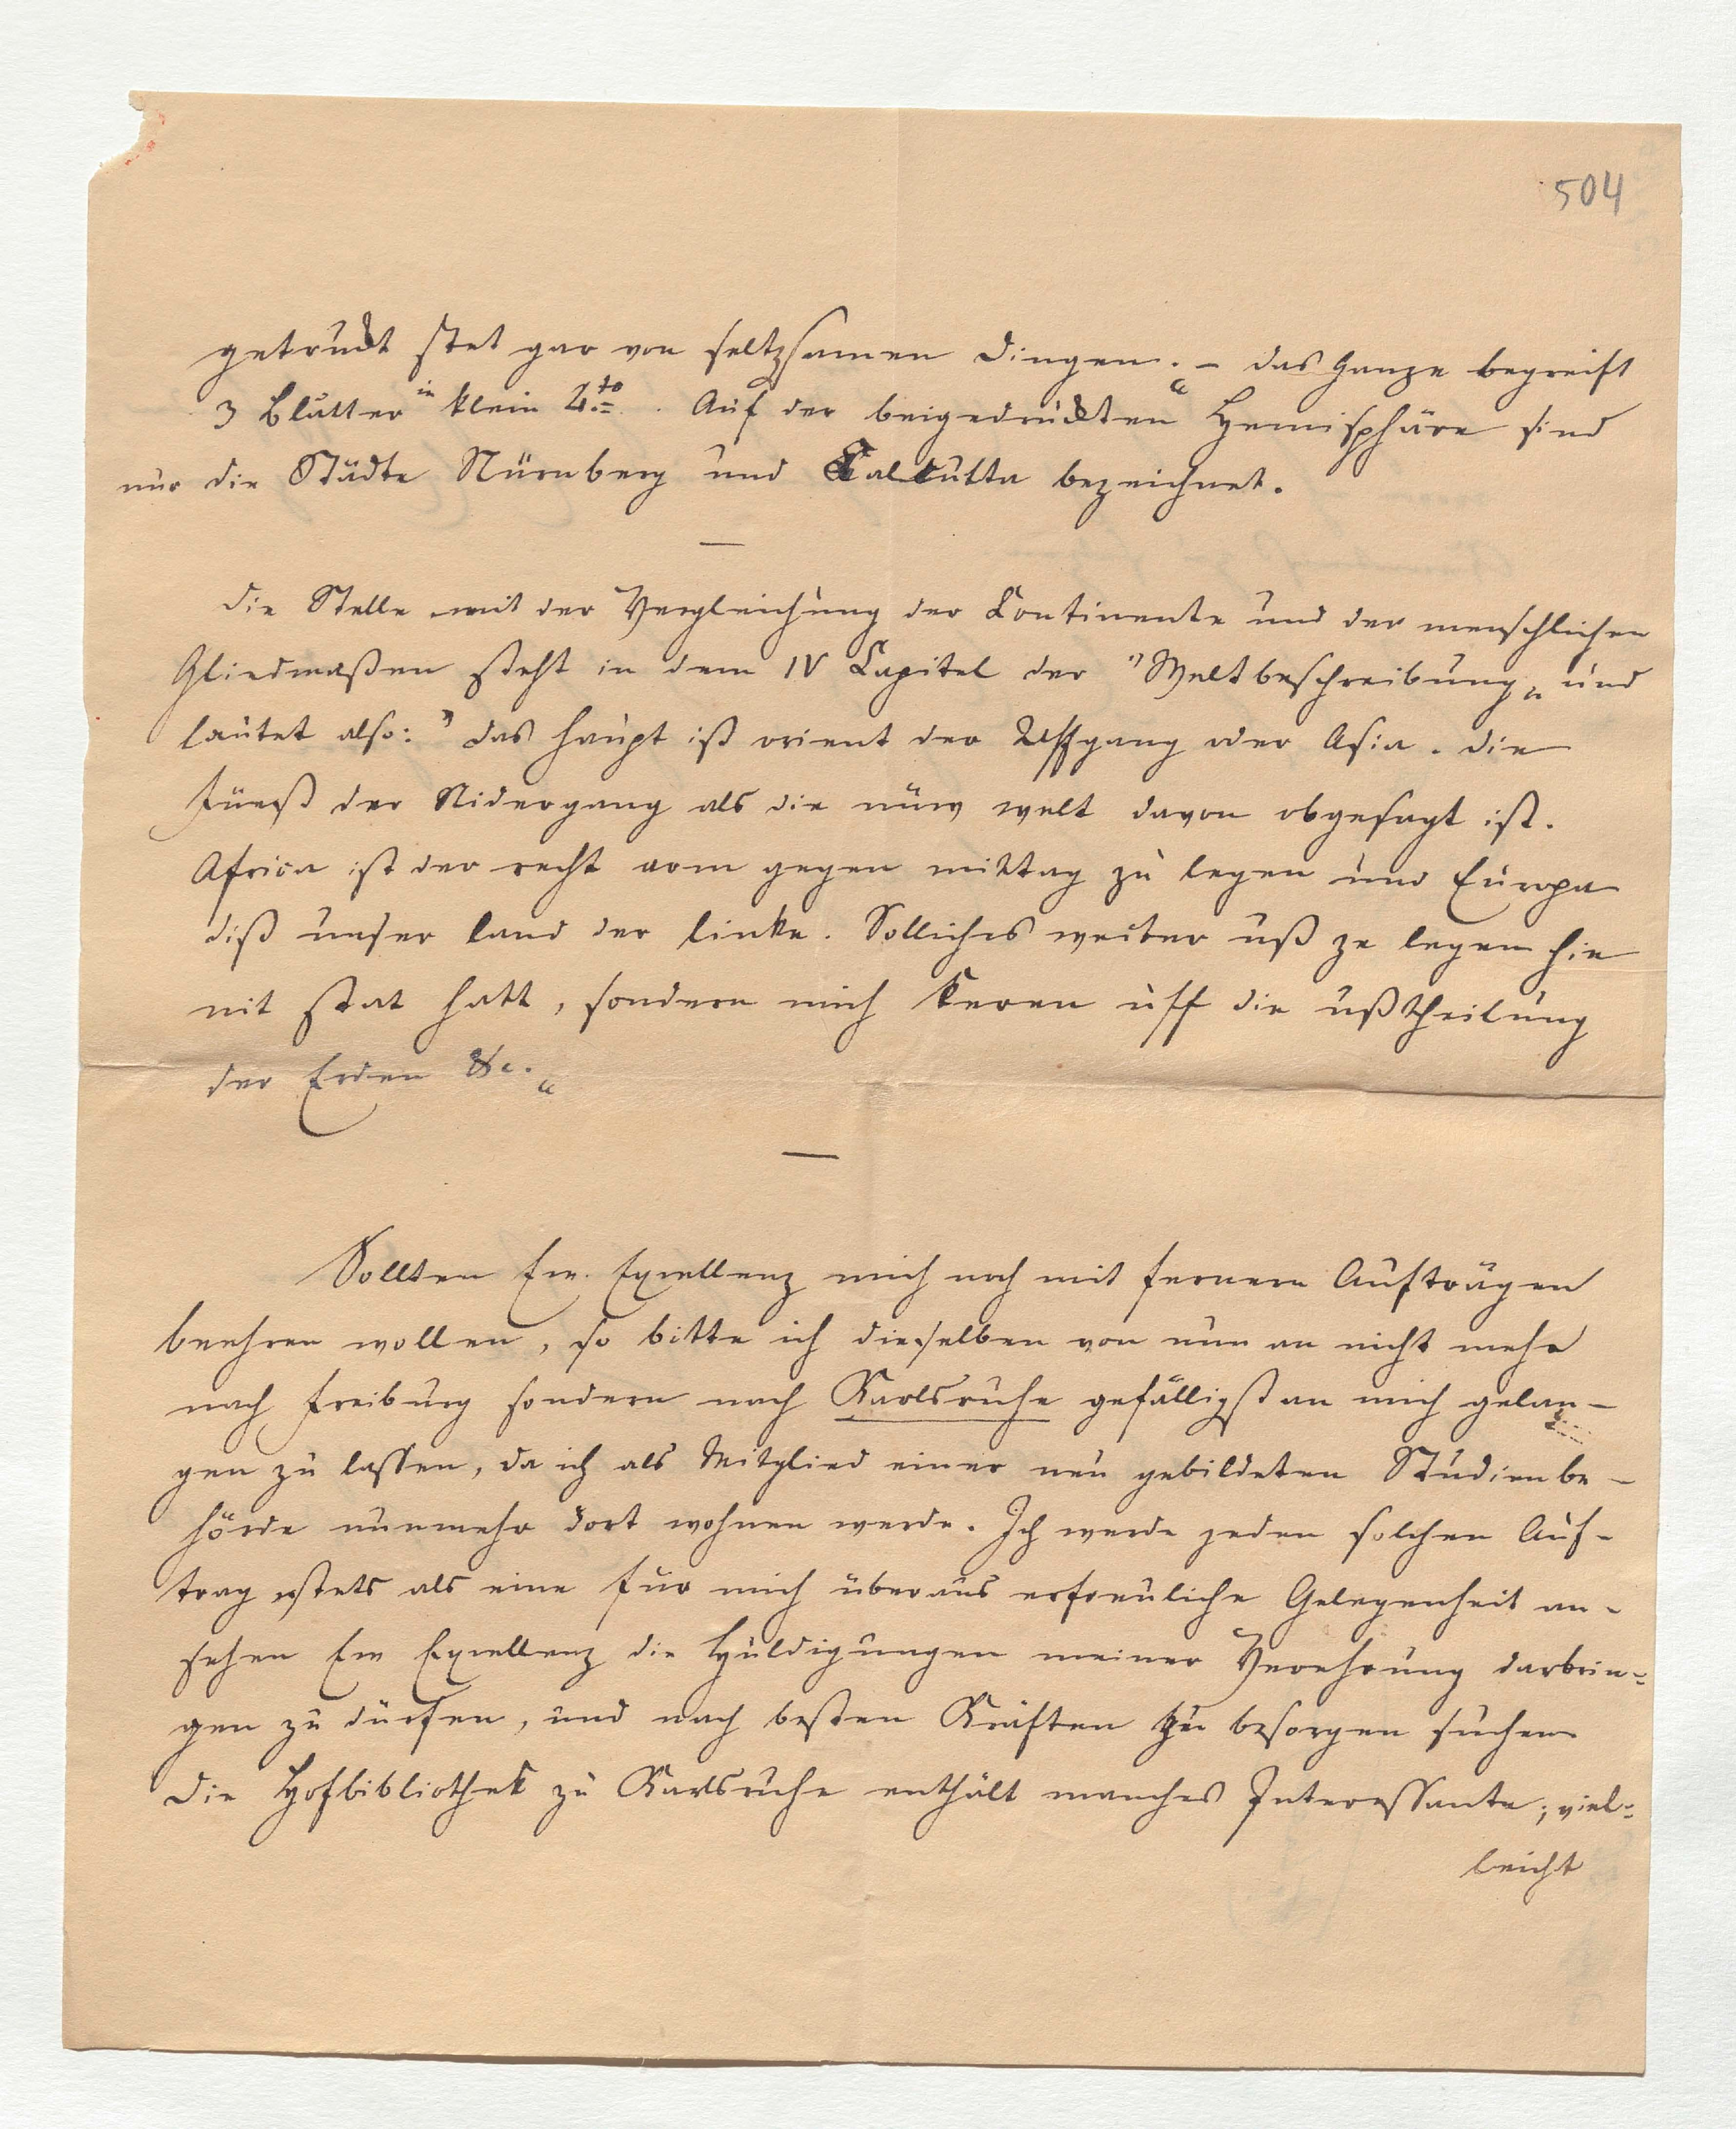 504
getruckt stet gar von seltzsamen dingen.“ – das Ganze begreift
3 Blätter in klein 4to. Auf der beigedruckten Hemisphäre sind
nur die Städte Nürnberg und Calcutta bezeichnet.
—
die Stelle mit der Vergleichung der Continente und der menschlichen
Gliedmaßen steht in dem IV Capitel der "Weltbeschreibung„ und
lautet also: "das haupt ist orient der Uffgang oder Asia. die
füeß der Nidergang als die nüw welt davon obgesagt ist.
Africa ist der recht arm gegen mittag zu legen und Europa
diß unser land der linke. Solliches weiter uß ze legen hie
nit stat hatt, sondern mich keren uff die ußtheilung
der Erden &c.“
—
Sollten Ew. Excellenz mich noch mit fernern Aufträgen
beehren wollen, so bitte ich dieselben von nun an nicht mehr
nach Freiburg sondern nach Karlsruhe gefälligst an mich gelan-
gen zu lassen, da ich als Mitglied einer neu gebildeten Studienbe-
hörde nunmehr dort wohnen werde. Ich werde jeden solchen Auf-
trag stets als eine für mich überaus erfreuliche Gelegenheit an-
sehen Ew Excellenz die Huldigungen meiner Verehrung darbrin=
gen zu dürfen, und nach besten Kräften zu besorgen suchen
die Hofbibliothek zu Karlsruhe enthält manches Interessante; viel=
leicht